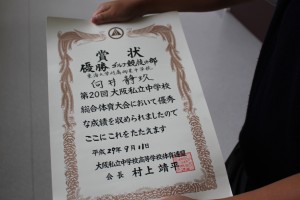 賞状
優勝 ゴルフ競技の部
第20回大阪私立中学校
総合体育大会において優秀
な成績を収められましたので
ここにこれをたたえます
平成29年9月18日
大阪私立中学校高等学校体育連盟
会長 村上 靖平